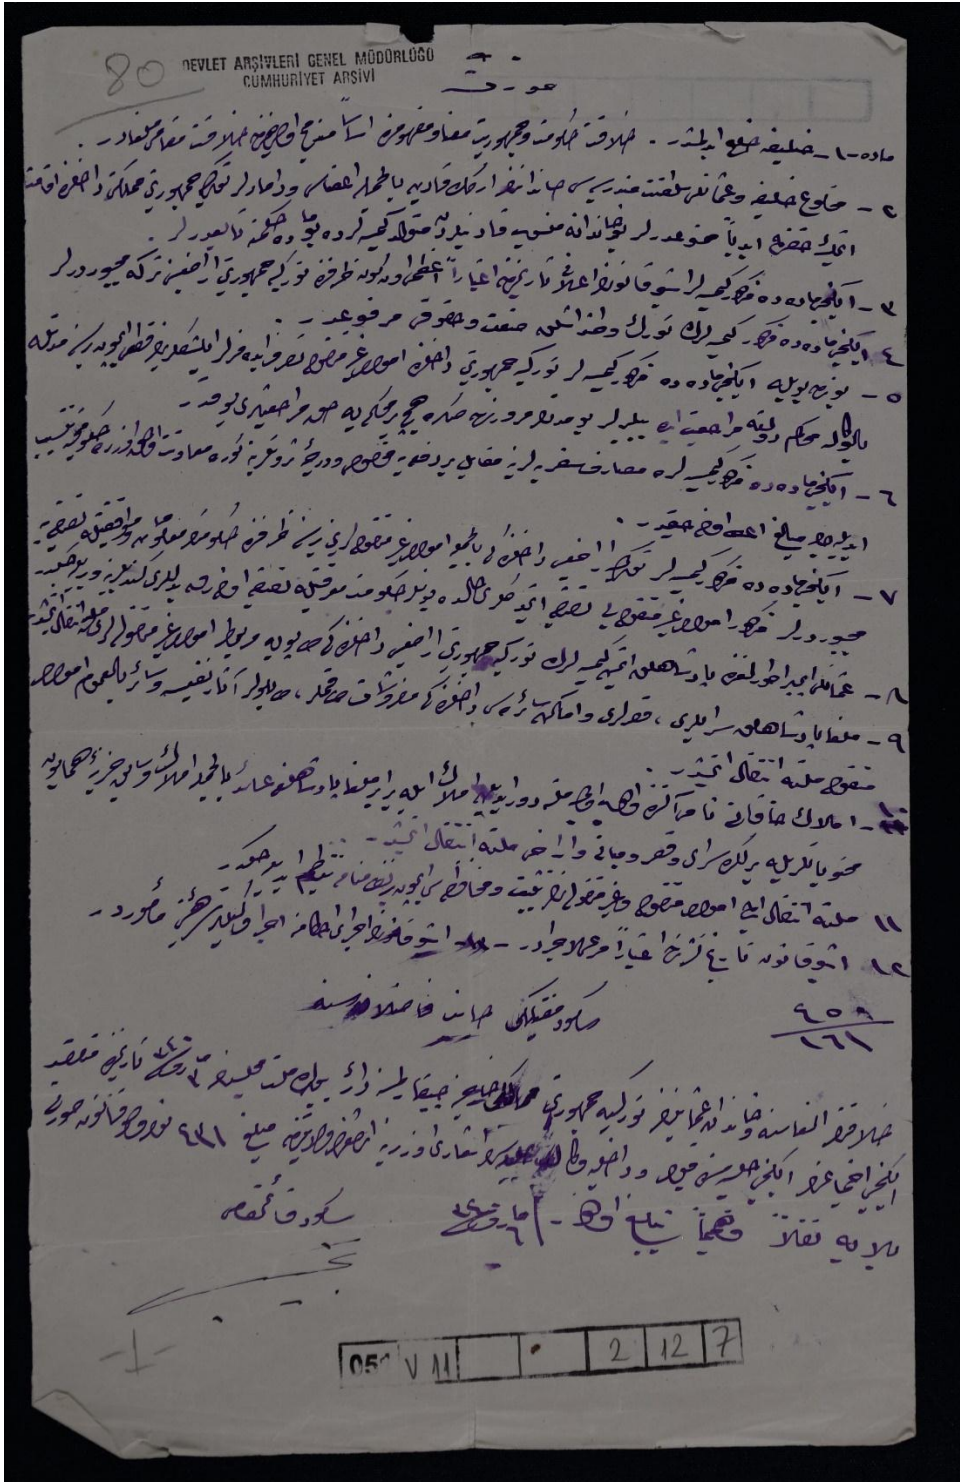 80
DEVLET ARŞİVLERİ GENEL MÜDÜRLÜĞÜ
CUMHURİYET ARŞİVİ
صورت
ماده -١- خليفه خلع ايدلمشدر. خلافت حكومت و جمهوريت معنا و مفهومنده اساساً مندمج اولديغندن خلافت مقامى ملغادر.
٢- مخلوع خليفه و عثمانلى سلطنت مندرسه سى خاندانينك اركك قادين بالجمله اعضاسى و دامادلر توركيه جمهوريتى ممالكى داخلنده اقامت
ايتمك حقندن ابدياً ممنوعدرلر بو خاندانه منسوب قادينلردن متولد كيمسه لرده بو ماده حكمنه تابعدرلر.
٣- ايكنجى ماده ده مذكور كيمسه لر اشبو قانونك اعلانى تاريخندن اعتباراً اعظمى اون كون ظرفنده توركيه جمهوريتى اراضيسنى تركه مجبوردرلر
٤- ايكنجى ماده ده مذكور كيمسه لرك تورك وطنداشلق صفت و حقوقى مرفوعدر.
٥- بوندن بويله ايكنجى ماده ده مذكور كيمسه لر توركيه جمهوريتى داخلنده اموال غير منقوله يه تصرف ايده مزلر ايليشكلرينك قطعى ايچون بر سنه مدتله
بالوكاله محاكم دولته مراجعت ايده بيليرلر بو مدتك مرورندن صكره هيچ بر محكمه يه حق مراجعتلرى يوقدر.
٦- ايكنجى ماده ده مذكور كيمسه لره مصارف سفريه لرينه مقابل بر دفعه يه مخصوص و درجۀ ثروتلرينه كوره متفاوت اولمق اوزره حكومتجه تنسيب
ايديله جك مبالغ اعطا اولنه جقدر.
٧- ايكنجى ماده ده مذكور كيمسه لر توركيه اراضيسى داخلنده كى بالجمله اموال غير منقوله لرينى بر سنه ظرفنده حكومتك معلومات و موافقتيله تصفيه يه
مجبوردرلر مذكور اموال غير منقوله يى تصفيه ايتمدكلرى حالده بونلر حكومت معرفتيله تصفيه اولنه رق بدللرى كنديلرينه ويريله جكدر.
٨- عثمانلى ايمپراطورلغنده پادشاهلق ايتمش كيمسه لرك توركيه جمهوريتى اراضيسى داخلنده كى طاپويه مربوط اموال غير منقوله لرى ملته انتقال ايتمشدر.
٩- ملغا پادشاهلق سرايلرى، قصرلرى و اماكن سائره سى داخلنده كى مفروشات طاقملر، طابلولر آثار نفيسه و سائر بالعموم اموال
منقوله ملته انتقال ايتمشدر.
١٠- املاك خاقانيه نامى آلتنده اولوب اولجه ملته دور ايديلن املاك ايله برابر ملغا پادشاهلغه عائد بالجمله املاك و سابق خزينۀ همايون
محتوياتلريله برلكده سراى و قصرلر و مبانى و اراضى ملته انتقال ايتمشدر.
١١ ملته انتقال ايدن اموال منقوله و غير منقوله نك تثبيت و محافظه سى ايچون بر نظامنامه تنظيم ايديله جكدر.
١٢ اشبو قانون تاريخ نشرندن اعتباراً مرعى الاجرادر. - اشبو قانونك اجراى احكامنه اجرا وكيللرى هيئتى مأموردر.
٤٥٨
١٦١
سكود مفتيلكى جانب فاضلانه سنه
خلافتك الغاسنه و خاندان عثمانينك توركيه جمهوريتى ممالكى خارجنه چيقارلمسنه دائر بيوك ملت مجلسنك ٣ مارت ٣٤٠ تاريخنده منعقد
ايكنجى اجتماعنك ايكنجى جلسه سنده قبول و داخليه وكالت اشعارى اوزرينه مبلغ ٤٣١ نومرولو قانون صورتى
بالايه نقلاً و تعميماً تبليغ اولنور. ٦ مارت ٣٤٠
سكود قائمقامى
-1-
05 V 11 . 2 12 7